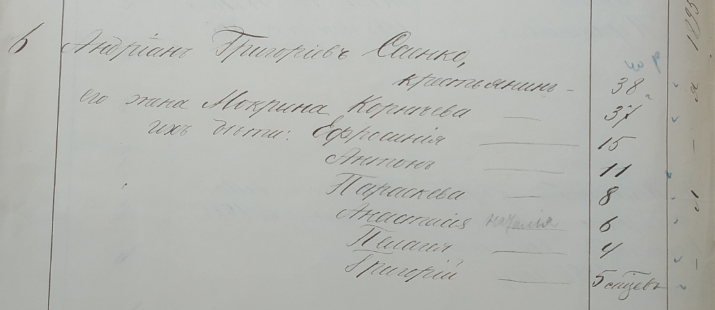 6 Андріанъ Григоріевъ Саенко,
крестьянинъ - 38
его жена Мокрина Корніева — 37
ихъ дѣти: Ефросинія — 15
Антонъ — 11
Параскева — 8
Анастасія наталія 6
Пелагія — 4
Григорій — 5 мѣсяцевъ